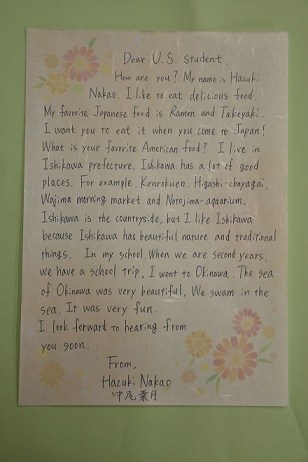 Dear U.S. student,
How are you? My name is Hazuki
Nakao. I like to eat delicious food.
My favorite Japanese food is Ramen and Takoyaki.
I want you to eat it when you come to Japan!
What is your favorite American food? I live in
Ishikawa prefecture. Ishikawa has a lot of good
places. For example, Kenrokuen, Higashi-chayagai,
Wajima morning market and Notojima-aquarium.
Ishikawa is the countryside, but I like Ishikawa
because Ishikawa has beautiful nature and traditional
things. In my school, When we are second years,
we have a school trip. I went to Okinawa. The sea
of Okinawa was very beautiful. We swam in the
sea. It was very fun.
I look forward to hearing from
you soon.
From,
Hazuki Nakao
中尾 葉月